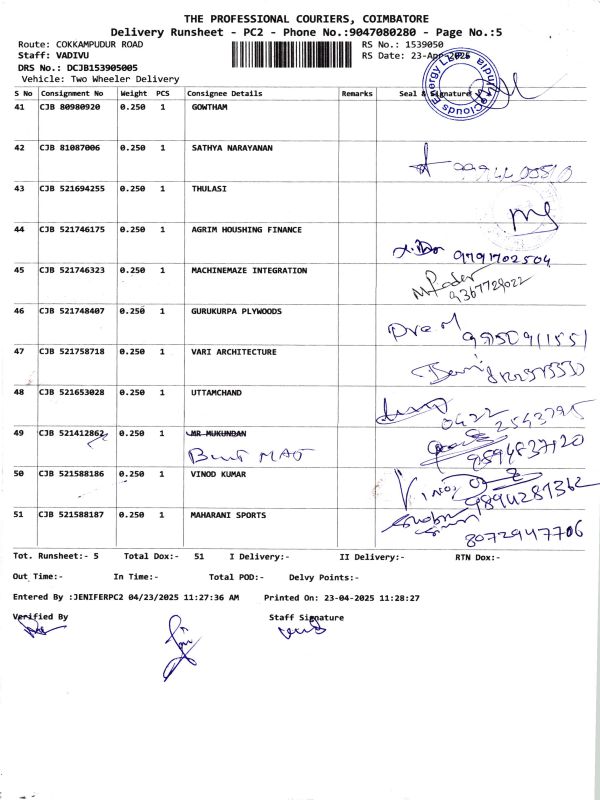 THE PROFESSIONAL COURIERS, COIMBATORE
Delivery Runsheet - PC2 - Phone No.:9047080280 - Page No.:5
Route: COKKAMPUDUR ROAD RS No.: 1539050
Staff: VADIVU RS Date: 23-Apr-2025
DRS No.: DCJB153905005
Vehicle: Two Wheeler Delivery
S No Consignment No Weight PCS Consignee Details Remarks Seal & Signature
41 CJB 80980920 0.250 1 GOWTHAM
42 CJB 81087006 0.250 1 SATHYA NARAYANAN
43 CJB 521694255 0.250 1 THULASI
44 CJB 521746175 0.250 1 AGRIM HOUSHING FINANCE
9791702504
45 CJB 521746323 0.250 1 MACHINEMAZE INTEGRATION
9367729022
46 CJB 521748407 0.250 1 GURUKURPA PLYWOODS
Prem
47 CJB 521758718 0.250 1 VARI ARCHITECTURE
48 CJB 521653028 0.250 1 UTTAMCHAND
0422
2543795
49 CJB 521412862 0.250 1 MR MUKUNDAN
9894837120
50 CJB 521588186 0.250 1 VINOD KUMAR
9894287362
51 CJB 521588187 0.250 1 MAHARANI SPORTS
8072947706
Tot. Runsheet:- 5 Total Dox:- 51 I Delivery:- II Delivery:- RTN Dox:-
Out Time:- In Time:- Total POD:- Delvy Points:-
Entered By :JENIFERPC2 04/23/2025 11:27:36 AM Printed On: 23-04-2025 11:28:27
Verified By Staff Signature